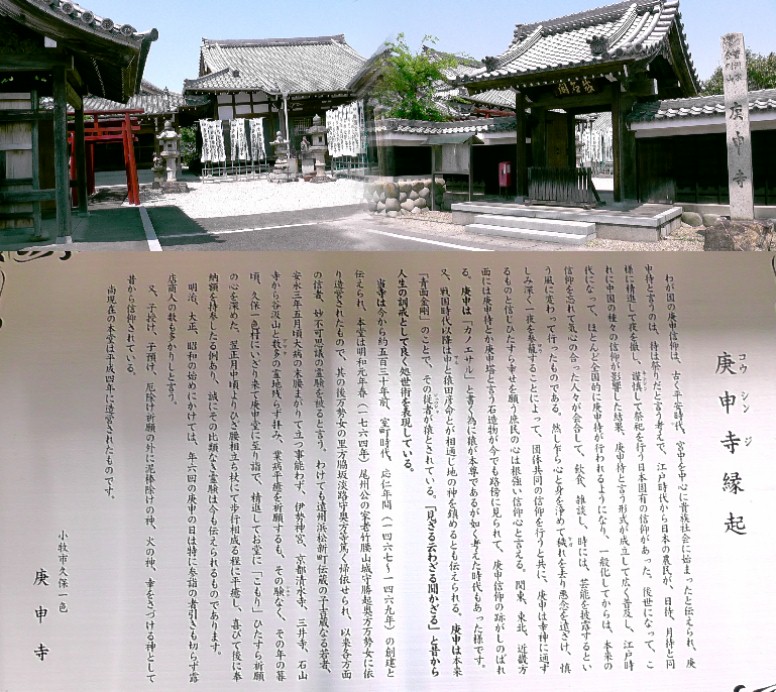 庚申寺
庚申寺縁起
コウシンジ
わが国の庚申信仰は、古く平安時代、宮中を中心に貴族社会に始まったと伝えられ、庚
申待と言うのは、待は祭りだと言う考えで、江戸時代から日本の農民が、日待、月待と同
様に精進して夜を徹し、謹慎して祭祀を行う日本固有の信仰があった。後世になって、こ
れに中国の種々の信仰が影響した結果、庚申待と言う形式が成立して広く普及し、江戸時
代になって、ほとんど全国的に庚申待が行われるようになり、一般化してからは、本来の
信仰を忘れて気心の合った人々が会合して、飲食、雑談し、時には、芸能を披露するとい
う風に変わって行ったものである。然し乍ら心と身を浄めて穢れを去り悪念を遠ざけ、慎
しみ深く一夜を参籠することによって、団体共同の信仰を行うと共に、庚申は幸神に通ず
るものと信じひたすら幸せを願う庶民の心は根強い信仰心と言える。関東、東北、近畿方
面には庚申待とか庚申塔と言う石造物が今でも路傍に見られて、庚申信仰の跡がしのばれ
る。庚申は「カノエサル」と書く為に猿が本尊であるが如く考えた時代もあった様です。
又、戦国時代以降は申と猿田彦命とが相通じ地の神を鎮めるとも伝えられる。庚申は本来
「青面金剛」のことで、その従者が猿とされている。「見ざる云わざる聞かざる」と昔から
人生の訓戒として良く処世術を表現している。
当寺は今から約五百三十年前、室町時代、応仁年間（一四六七〜一四六九年）の創建と
伝えられ、本堂は明和元年春（一七六四年）尾州公の家老竹腰山城守勝起奥方万勢女に依
り造営されたもので、其の後万勢女の里方脇坂淡路守奥方等篤く帰依せられ、以来各方面
の信者、妙不可思議の霊験を被ると言う。わけても遠州浜松新町伝蔵の子吉蔵なる若者、
安永三年五月頃大病の末腰まがりて立つ事能わず、伊勢神宮、京都清水寺、三井寺、石山
寺から谷汲山と数多の霊地残らず拝み、業病平癒を祈願するも、その験なく、その年の暮
頃、久保一色村にいざり来て庚申堂に至り詣で、精進してお堂に「こもり」ひたすら祈願
の心を深めた。翌正月中頃よりいざ腰相立ち杖にて歩行相成る程に平癒し、喜びて後に奉
納額を持参したる例あり、誠にその比類なき霊験は今も伝えられるものであります。
明治、大正、昭和の始めにかけては、年六回の庚申の日は特に参詣の者引きも切らず露
店商人の数も多かりしと言う。
又、子授け、子預け、厄除け祈願の外に泥棒除けの神、火の神、幸をさづける神として
昔から信仰されている。
尚現在の本堂は平成四年に造営されたものです。
小牧市久保一色
庚申寺